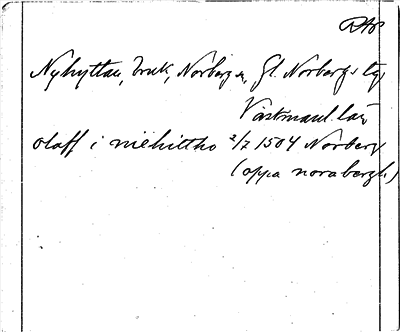 RAP
Nyhyttan, bruk, Norberga, Gl. Norbergs bg
Västmanl. län
olaff i niehittho 2/7 1504 Norberg
(oppa norabergh)